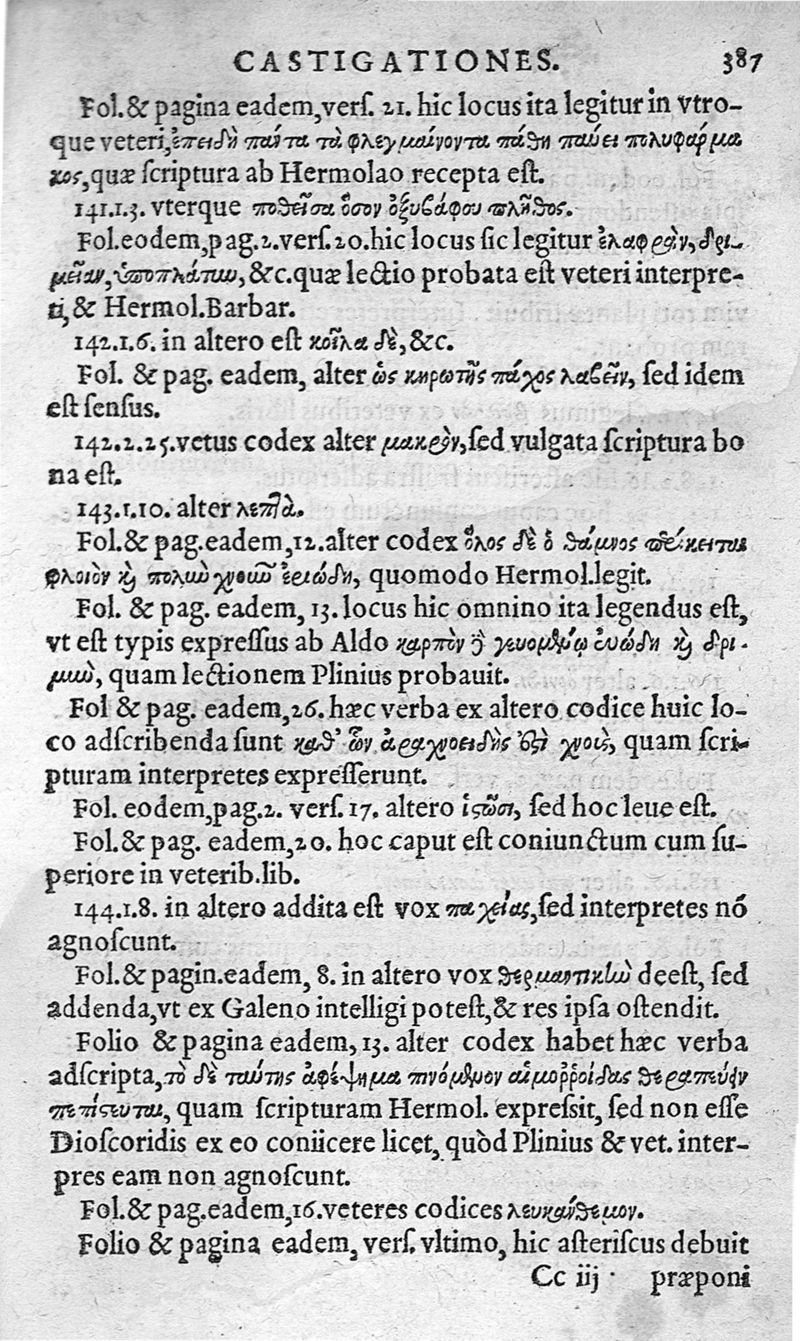 CASTIGATIONES. 387
Fol.& pagina eadem,verſ. 21. hic locus ita legitur in vtro-
que veteri,ἐπειδὴ πάντα τὰ φλεγμαίνοντα πάθη παύει πολυφάρμα
κος,quæ ſcriptura ab Hermolao recepta eſt.
141.1.3. vterque ποθεῖσα ὅσον ὀξυβάφου πλῆθος.
Fol.eodem,pag.2.verſ.20.hic locus ſic legitur ἐλαφρὰν,δρι-
μεῖαν,ὑποπλάτιω,&c.quæ lectio probata eſt veteri interpre-
ti,& Hermol.Barbar.
142.1.6. in altero eſt κοῖλα δὲ,&c.
Fol. & pag. eadem, alter ὡς κηρωτῆς πάχος λαβεῖν, ſed idem
eſt ſenſus.
142.2.25.vetus codex alter μακρὰν,ſed vulgata ſcriptura bo
na eſt.
143.1.10. alter λεπτὰ.
Fol.& pag.eadem,12.alter codex ὅλος δὲ ὁ θάμνος περίκειται
φλοιὸν καὶ πολιὼ χνοιῶ ἐριώδη, quomodo Hermol.legit.
Fol. & pag. eadem, 13. locus hic omnino ita legendus eſt,
vt eſt typis expreſſus ab Aldo καρπὸν ἢ γευομένῳ εὐώδη καὶ δρι-
μιὼ, quam lectionem Plinius probauit.
Fol & pag. eadem,26. hæc verba ex altero codice huic lo-
co adſcribenda ſunt καθ' ὧν ἀραχνοειδὴς ἐστὶ χνοῦς, quam ſcri-
pturam interpretes expreſſerunt.
Fol. eodem,pag.2. verſ.17. altero ἱστῶσι, ſed hoc leue eſt.
Fol.& pag. eadem,20. hoc caput eſt coniunctum cum ſu-
periore in veterib.lib.
144.1.8. in altero addita eſt vox παχείας,ſed interpretes nõ
agnoſcunt.
Fol.& pagin.eadem, 8. in altero vox θερμαντικὼ deeſt, ſed
addenda,vt ex Galeno intelligi poteſt,& res ipſa oſtendit.
Folio & pagina eadem,13. alter codex habet hæc verba
adſcripta,τὸ δὲ ταύτης ἀφέψημα πινόμενον αἱμοῤῥοίδας θεραπεύειν
πεπίστευται, quam ſcripturam Hermol. expreſſit, ſed non eſſe
Dioſcoridis ex eo coniicere licet, quòd Plinius & vet. inter-
pres eam non agnoſcunt.
Fol.& pag.eadem,16.veteres codices λευκάνθεμον.
Folio & pagina eadem, verſ. vltimo, hic aſteriſcus debuit
Cc iij præponi